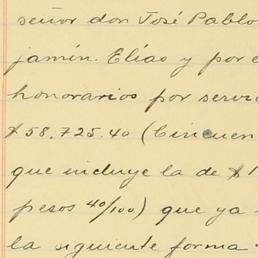 señor don José Pablo
jamín. Elías y por e
honorarios por servic
$58,725.40 (Cincuen
que incluye la de $1
pesos 40/100) que ya
la siguiente forma